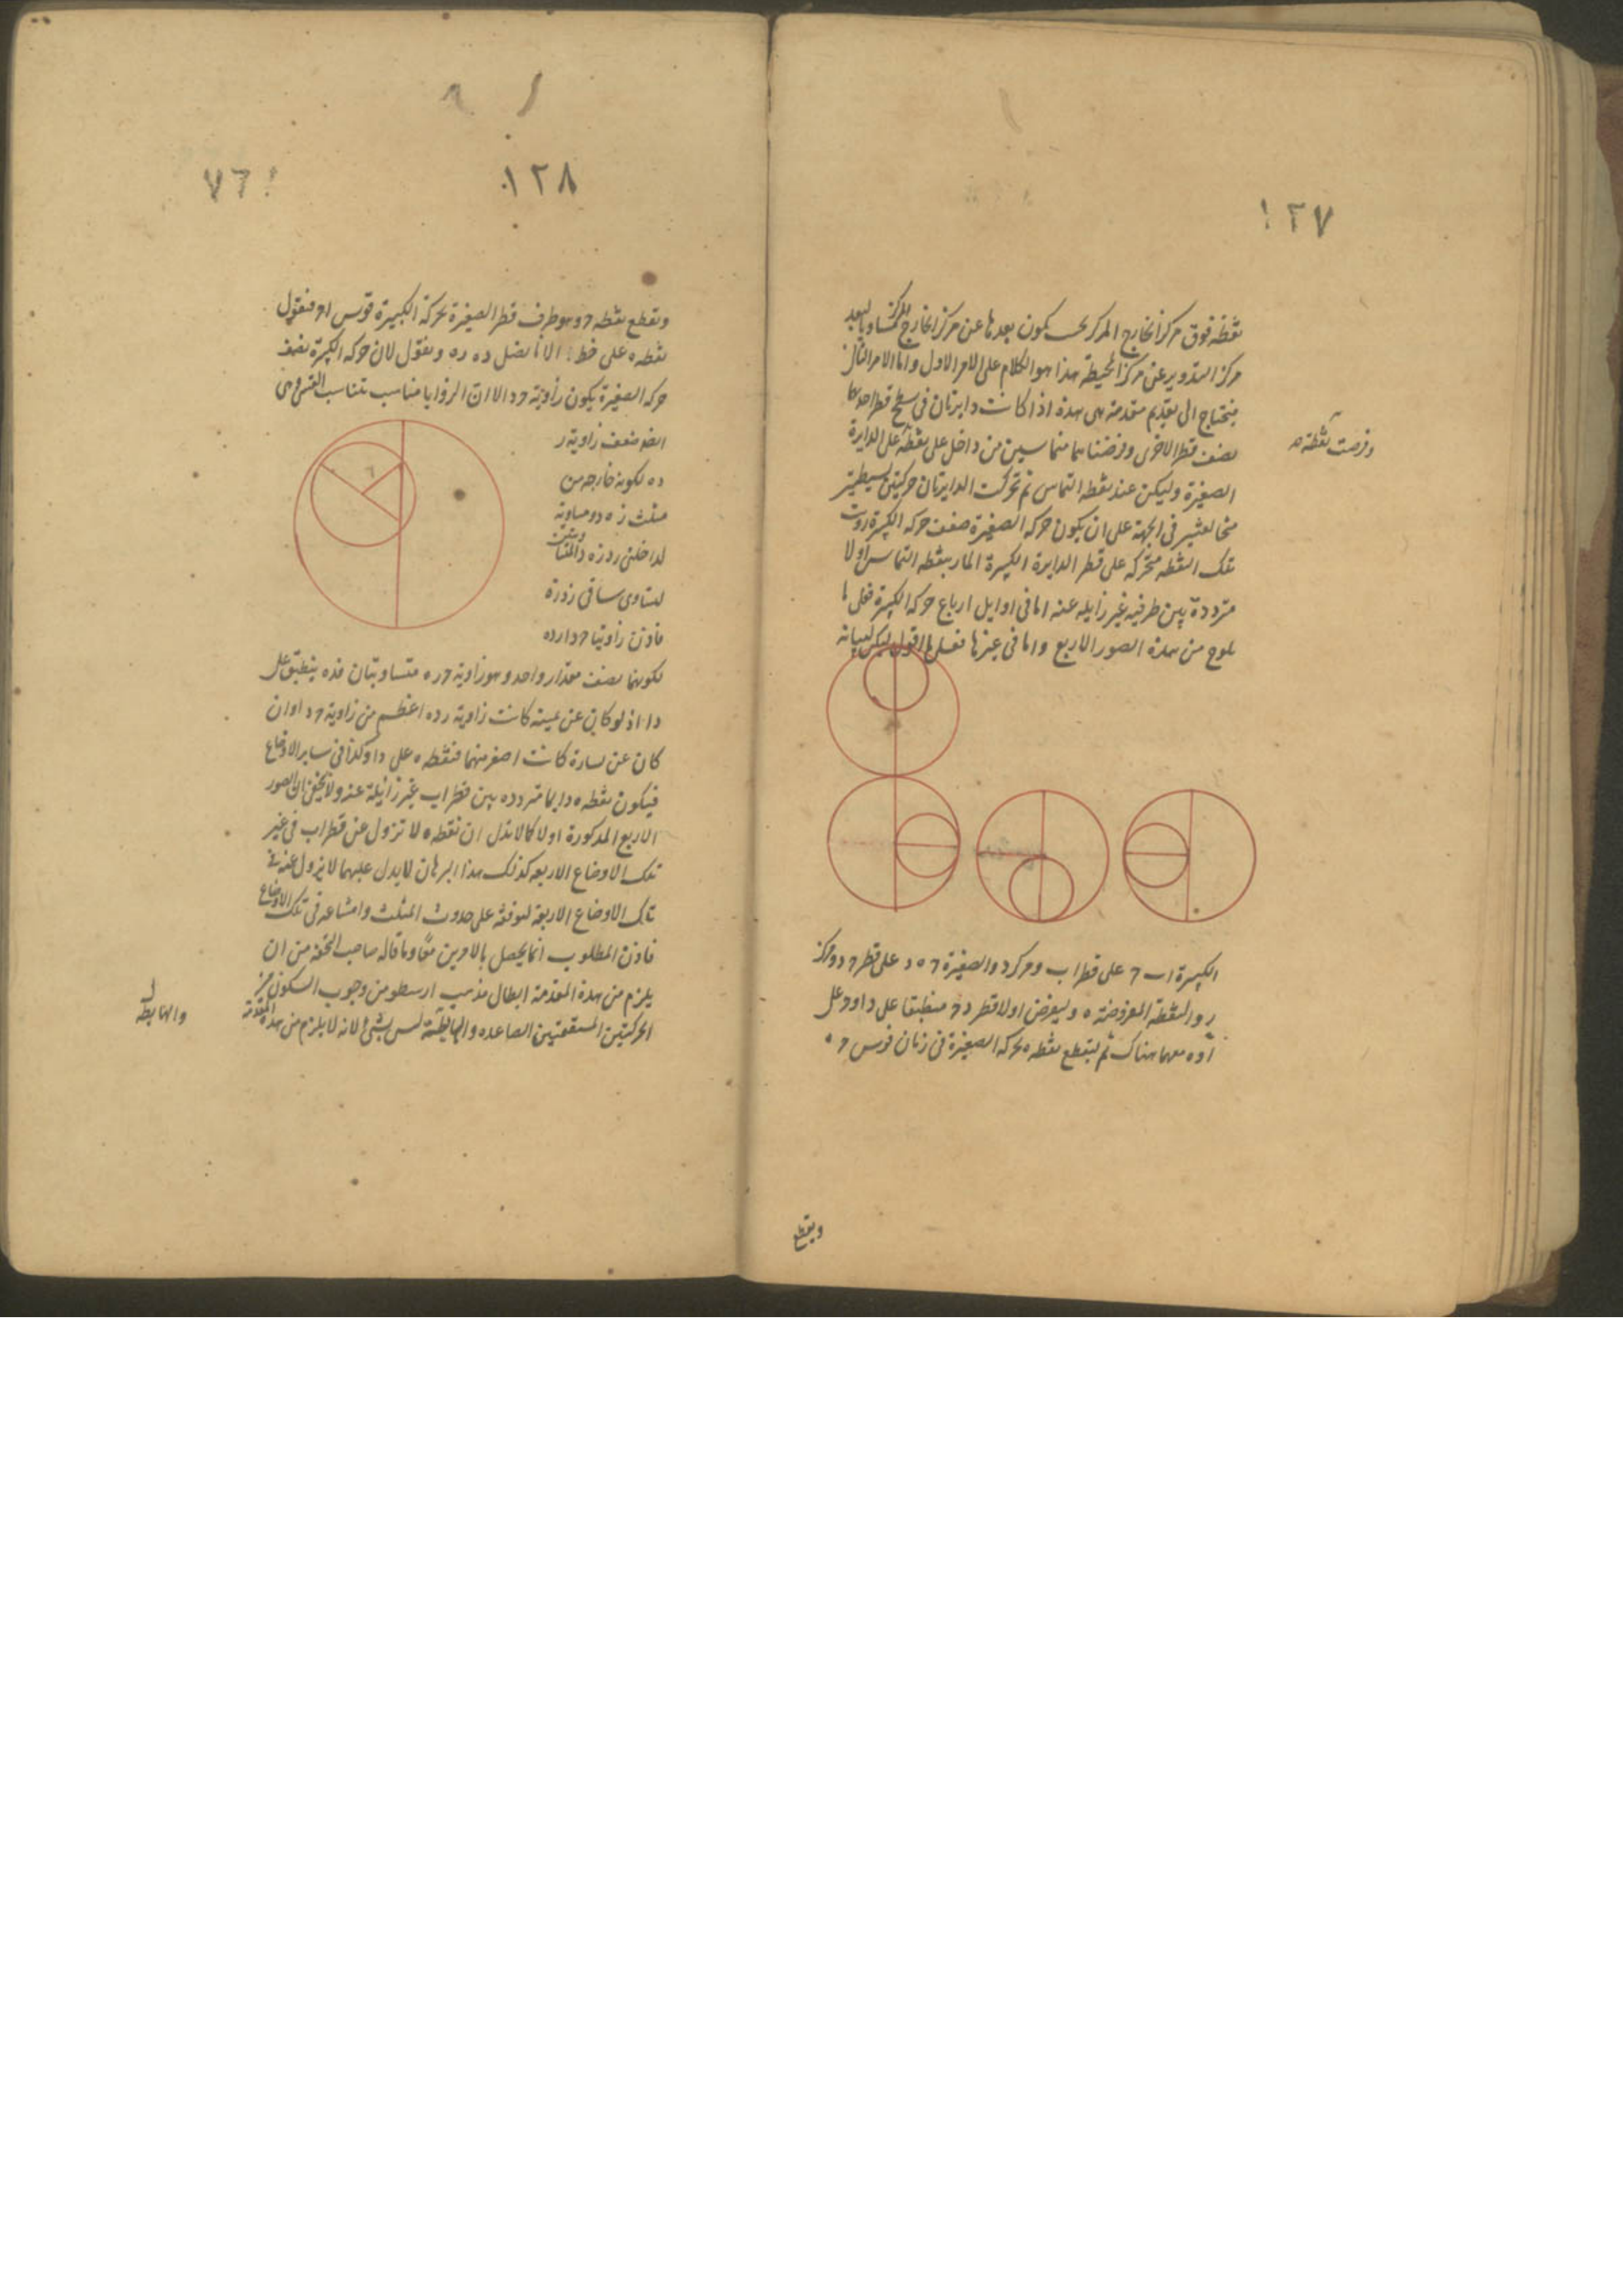 ١٢٧
نقطة فوق مركز الخارج المركز بحيث يكون بعدها عن مركز الخارج المركز مساويا لبعد
مركز التدوير عن مركز المحيطة هذا هو الكلام على الامر الاول واما الامر الثانى
فيحتاج الى تقديم مقدمة هى هذه اذا كانت دايرتان فى سطح قطر احديهما
نصف قطر الاخرى وفرضتا متماسين من داخل على نقطة على الدايرة
وفرضت نقطة
الصغيرة وليكن عند نقطه التماس ثم تحركت الدايرتان حركتين بسيطتين
مخالفتين فى الجهة على ان يكون حركه الصغيرة ضعف حركه الكبيرة رؤيت
تلك النقطه متحركه على قطر الدايرة الكبيرة المار بنقطه التماس اولا
مترددة بين طرفيه غير زايله عنه اما فى اوايل ارباع حركه الكبيرة فعلى ما
يلوح من هذه الصور الاربع واما فى غيرها فعلى ما اقول ليكن لبيانه
الكبيرة ا ب ح على قطر ا ب ومركز د والصغيرة ح ه د على قطر ح د ومركز
ر والنقطة المفروضة ه وليفرض اولا قطر د ح منطبقا على د ا و ح على
ا و ه معهما هناك ثم ليقطع نقطه ه بحركه الصغيرة فى زمان قوس ح ه
ويقطع
١٢٨
٧٦
ويقطع نقطه ح وهو طرف قطر الصغيرة بحركة الكبيرة قوس ا ح فنقول
نقطه ه على خط ا ب الانا نصل ده ره ونقول لان حركه الكبيرة نصف
حركه الصغيرة يكون زاوية ح د ا لان الزوايا مناسب تناسب القسى وهى
ايضا ضعف زاوية ر
ده لكونه خارجه من
مثلث ر ه د ومساوية
لداخلتى ر د ه ر ه د المتساويتين
لتساوى ساقى ر د ر ه
فاذن زاويتا ح د ا ر د ه
لكونهما نصف مقدار واحد وهو زاوية ح ر ه متساويتان فده ينطبق على
د ا اذ لو كان عن يمينه كانت زاوية ر د ه اعظم من زاوية ح د ا وان
كان عن يساره كانت اصغر منهما فنقطه ه على د ا وكذا فى ساير الاوضاع
فيكون نقطه ه دايما مترددة بين قطر ا ب غير زايلة عنه ولا يخفى ان الصور
الاربع المذكورة اولا كما لا تدل ان نقطه ه لا تزول عن قطر ا ب فى غير
تلك الاوضاع الاربعه كذلك هذا البرهان لا يدل عليهما لا يزول عنه فى
تلك الاوضاع الاربعة لتوقفه على حدوث المثلث وامتناعه فى تلك الاوضاع
فاذن المطلوب انما يحصل بالامرين معا وما قاله صاحب التحفه من ان
يلزم من هذه المقدمة ابطال مذهب ارسطو من وجوب السكون بين
الحركتين المستقيمتين الصاعده والهابطة ليس بشئ لانه لا يلزم من هذه المقدمة
والهابطه